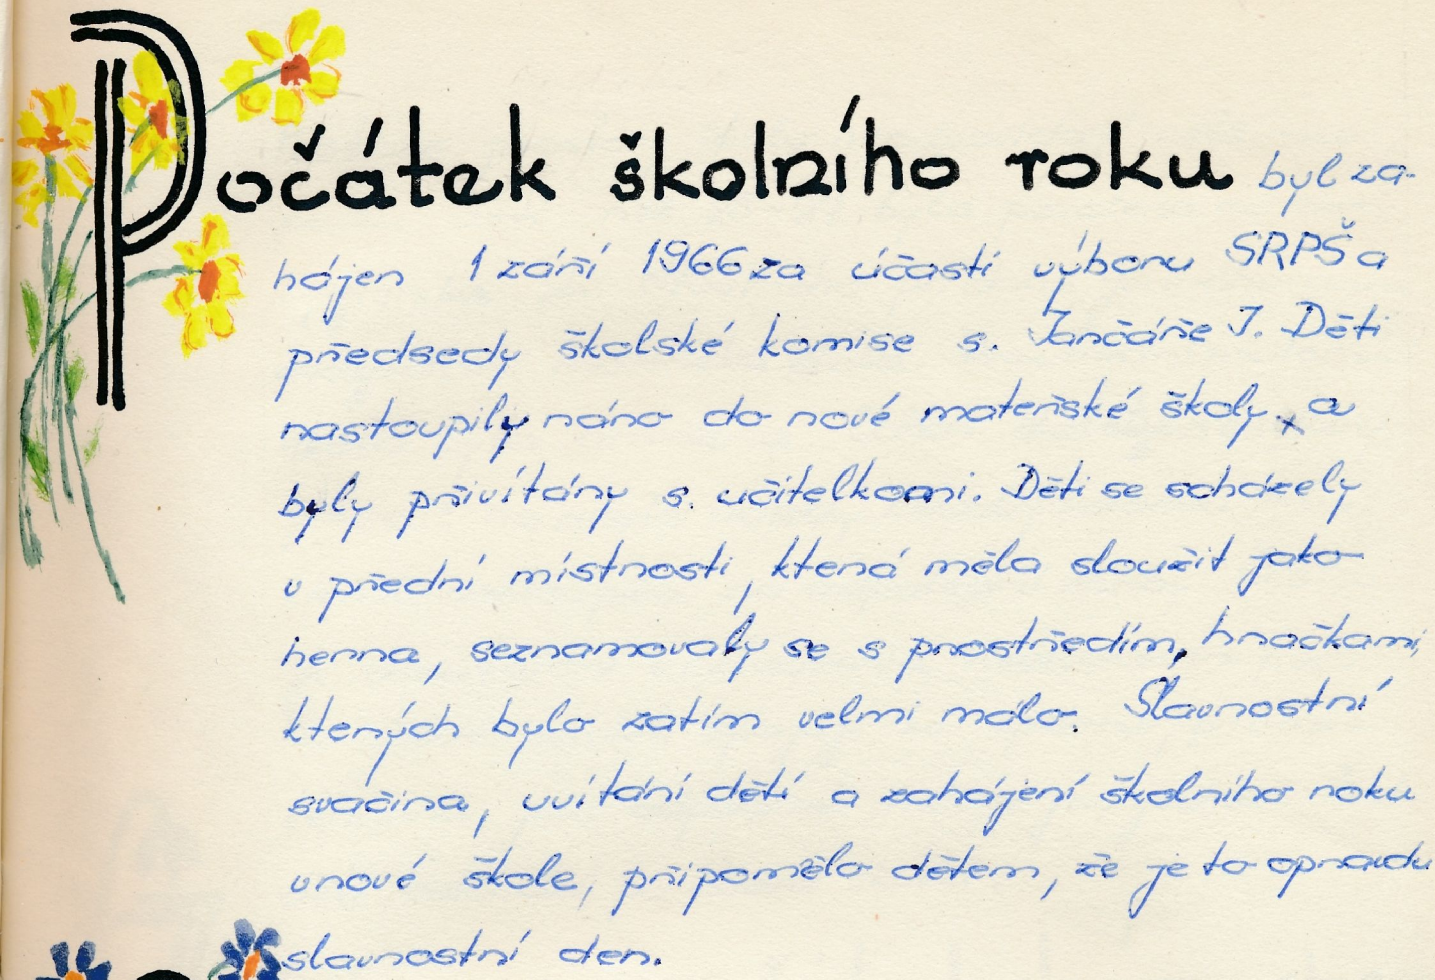 Počátek školního roku byl za-
hájen 1 září 1966 za účasti výboru SRPŠ a
předsedy školské komise s. Jančáře J. Děti
nastoupily ráno do nové mateřské školy. a
byly přivítány s. učitelkami. Děti se scházely
v přední místnosti, která měla sloužit jako
herna, seznamovaly se s prostředím, hračkami,
kterých bylo zatím velmi málo. Slavnostní
svačina, uvítání dětí a zahájení školního roku
v nové škole, připomělo dětem, že je to opravdu
slavnostní den.